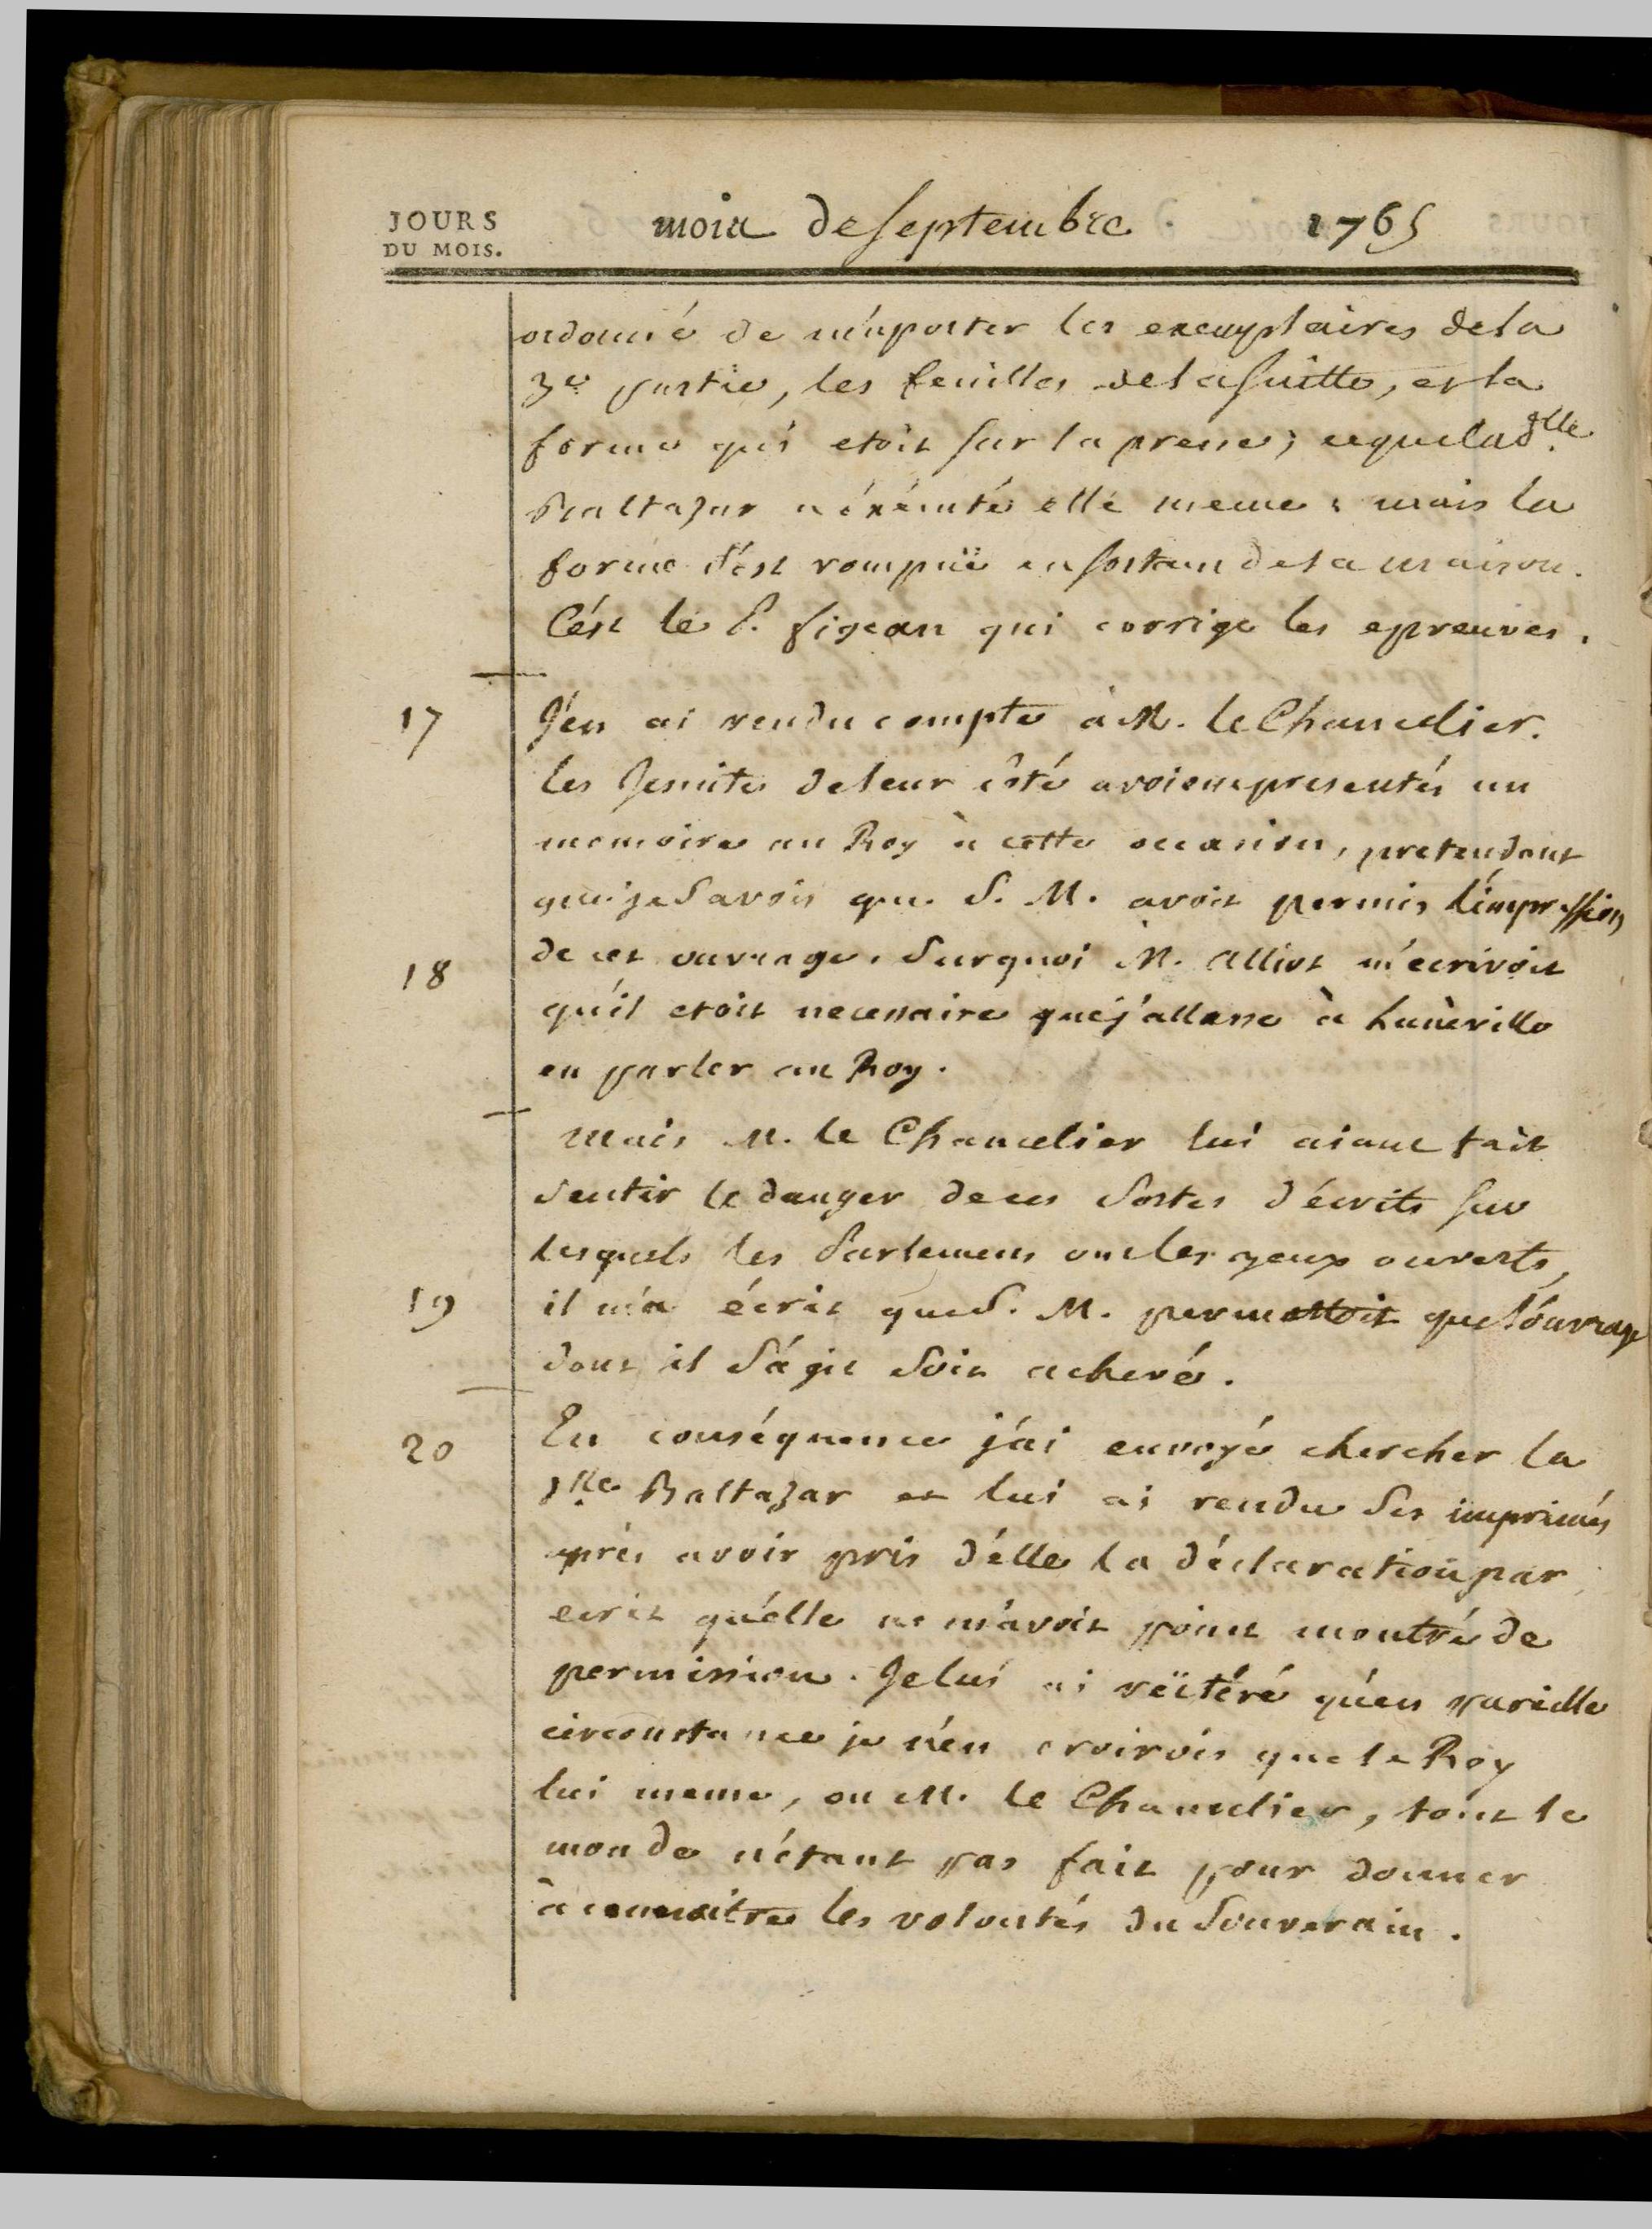 JOURS
DU MOIS.
mois de septembre 1765
ordonné de m'aporter les exemplaires de la
3e partie, les feuilles de la suitte, et la
forme qui etoit sur la presse; ce que lad. dlle
Baltazar a éxécuté elle meme; mais la
forme s'est rompuë en sortant de sa maison.
C'ést le P. figean qui corrige les epreuves.
17 J'en ai rendu compte à M. le Chancelier.
les Jesuites de leur côté avoient presentés un
memoire au Roy à cette occasion, pretendant
que je savois que S. M. avoit permis l'impression
de cet ouvrage. Surquoi M. Alliot m'ecrivoit
18 qu'il etoit necessaire que j'allasse à Lunèville
en parler au Roy.
Mais M. le Chancelier lui aiant fait
sentir le danger de ces sortes d'écrits sur
lesquels les Parlemens ont les yeux ouverts,
19 il m'a écrit que S. M. permettoit que l'ouvrage
dont il s'agit soit achevé.
20 En conséquence j'ai envoyé chercher la
dlle Baltazar et lui ai rendu ses imprimés
après avoir pris d'elle la déclaration par
ecrit qu'elle ne m'avoit point montré de
permission. Je lui ai réïtéré qu'en pareille
circonstance je n'en croirois que le Roy
lui meme, ou M. le Chancelier, tout le
monde n'étant pas fait pour donner
à connoitre les volontés du Souverain.